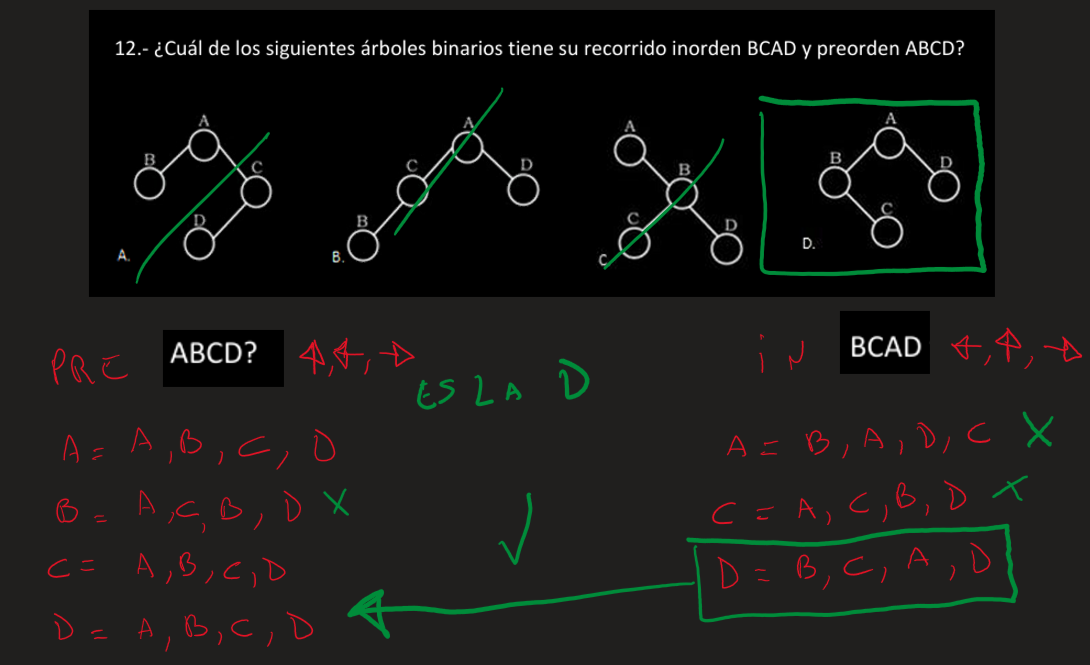 12.- ¿Cuál de los siguientes árboles binarios tiene su recorrido inorden BCAD y preorden ABCD?
A B C D A.
A C D B B.
A B C D C
A B D C D.
PRE ABCD?
iN BCAD
ES LA D
A = A, B, C, D
B = A, C, B, D X
C = A, B, C, D
D = A, B, C, D
A = B, A, D, C X
C = A, C, B, D X
D = B, C, A, D